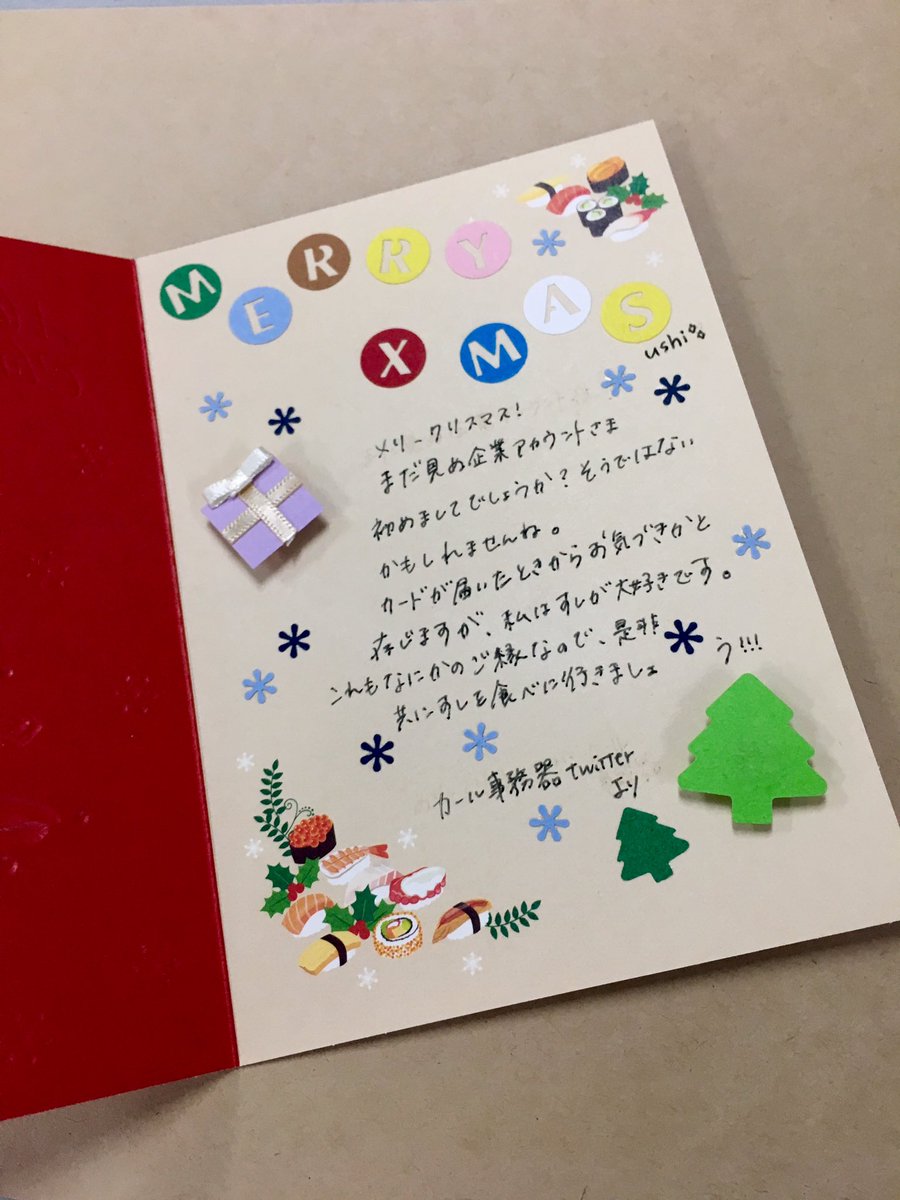 MERRY
XMAS
ushi
メリークリスマス!
まだ見ぬ企業アカウントさま
初めましてでしょうか?そうではない
かもしれませんね。
カードが届いたときからお気づきかと
存じますが、私はすしが大好きです。
これもなにかのご縁なので、是非
共にすしを食べに行きましょう!!!
カール事務器twitter
より